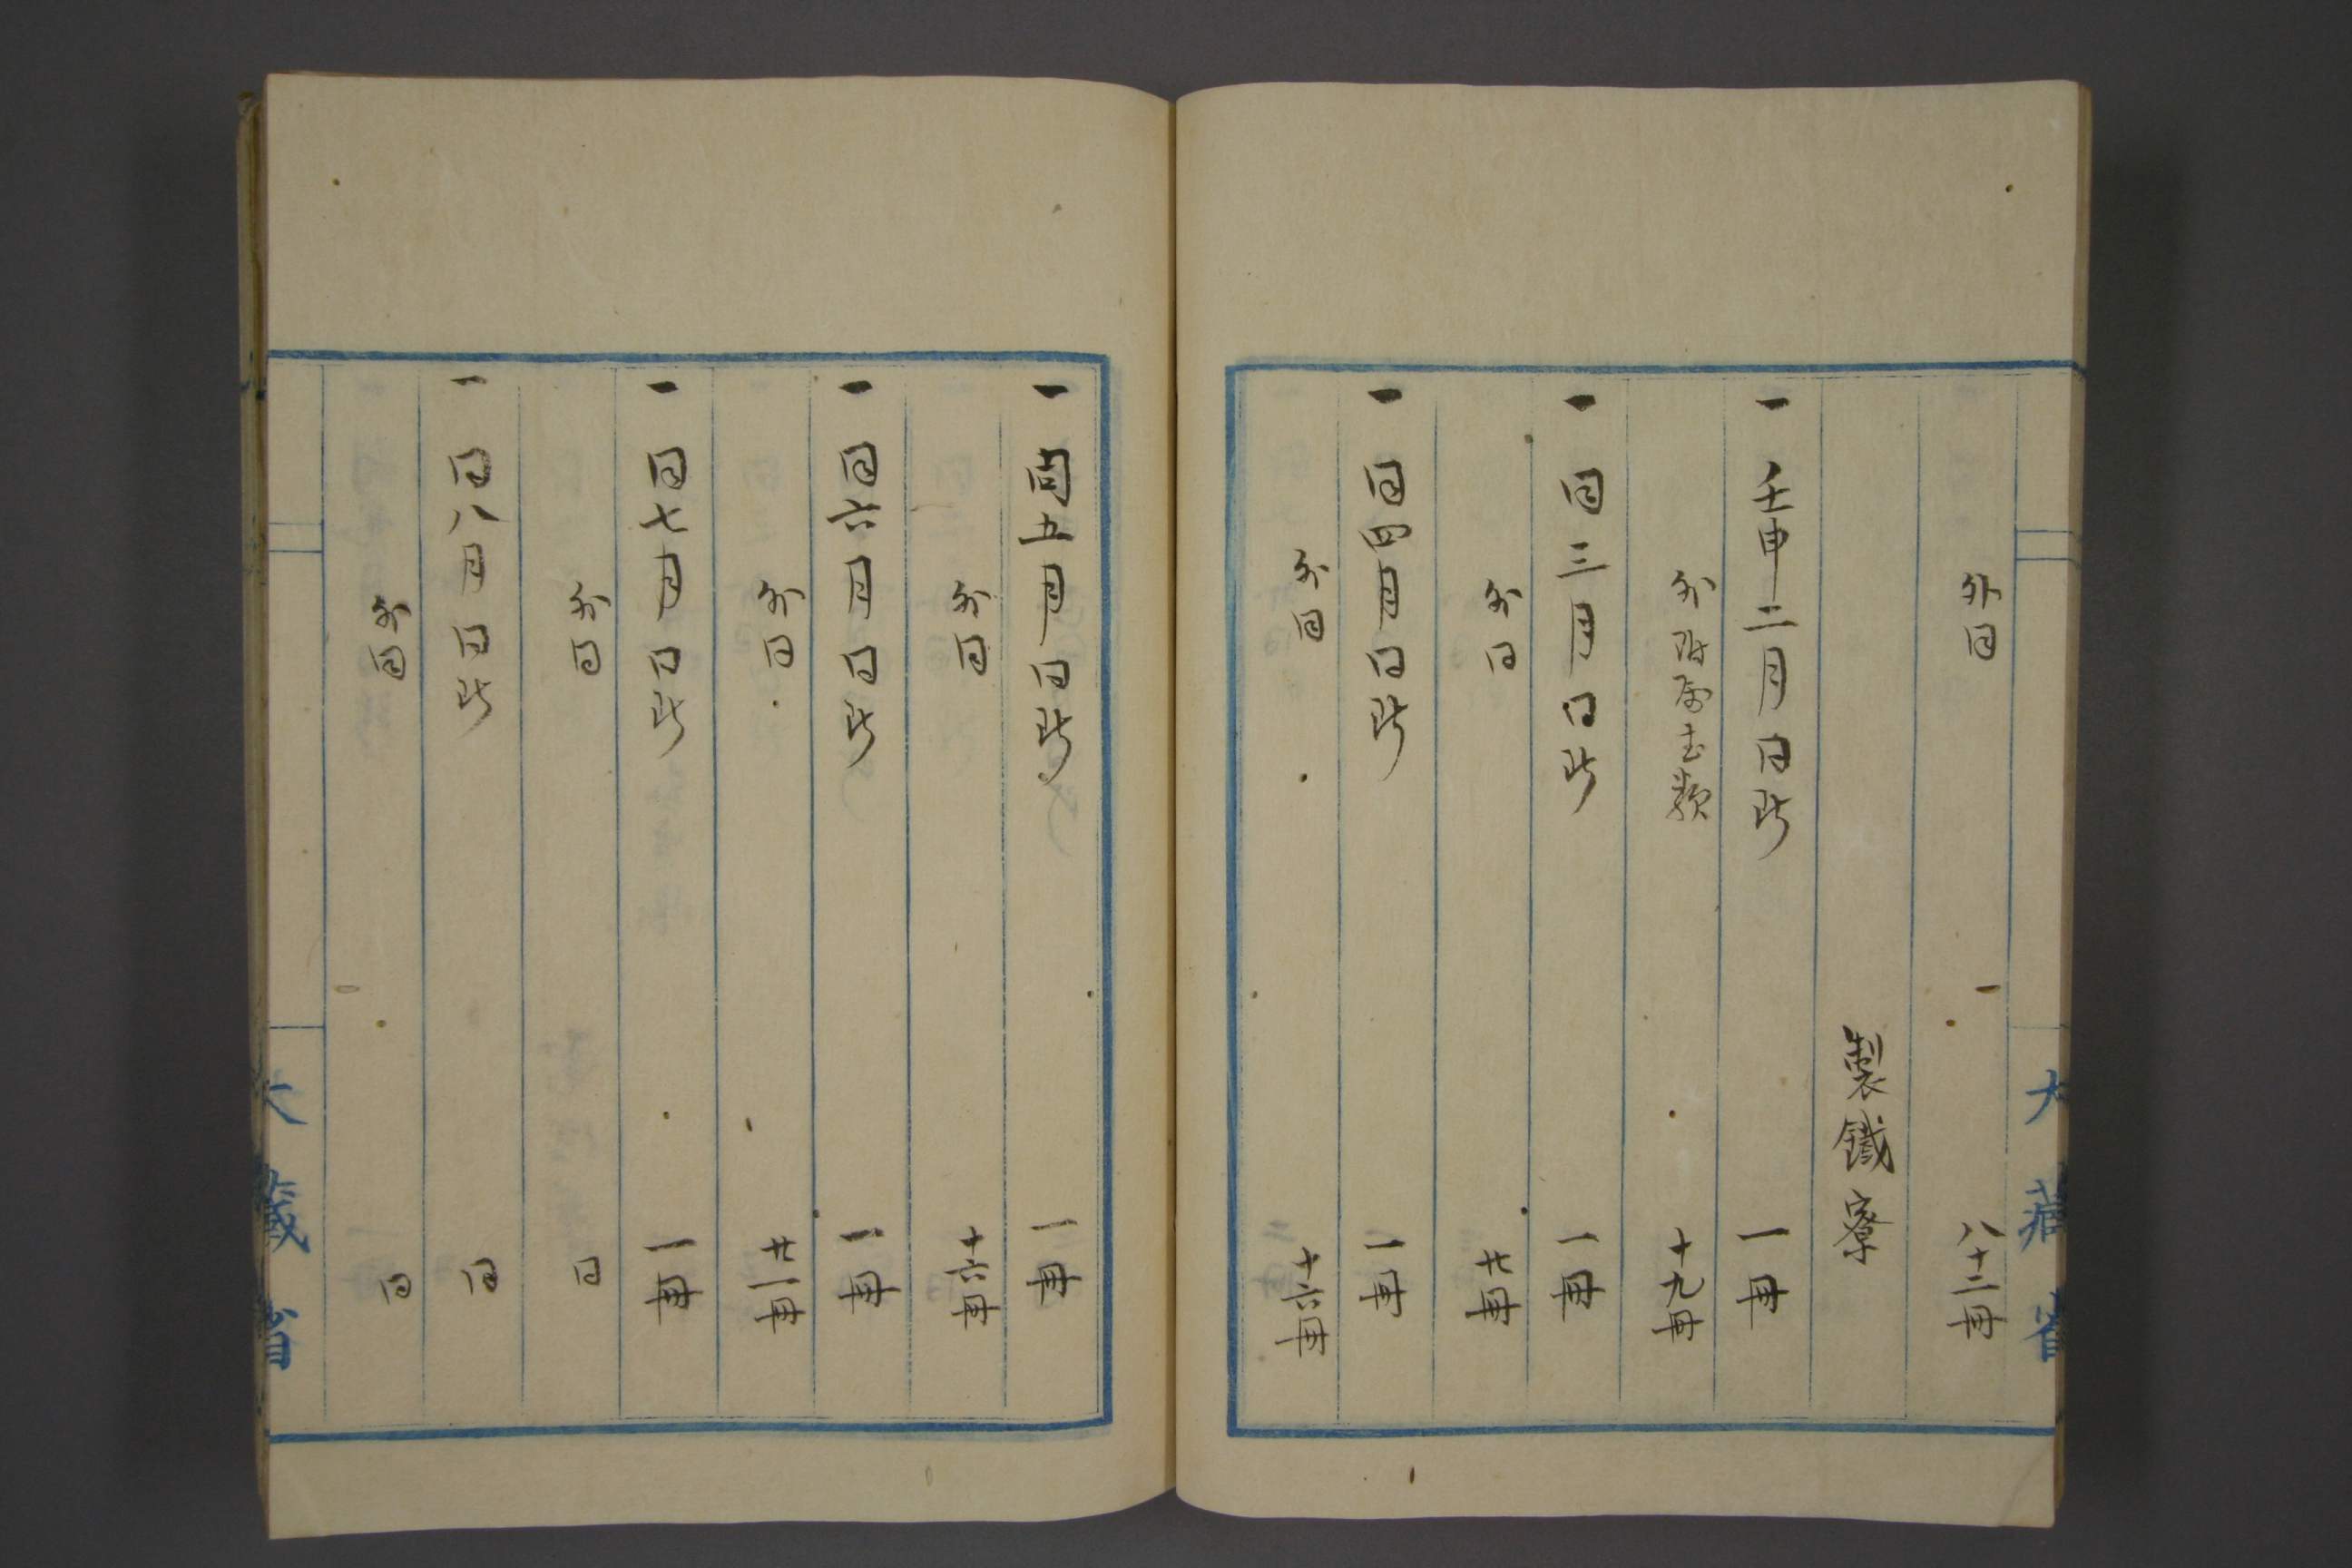 外同 一 八十二冊
製鐵寮
一 壬申二月同断 一冊
外附属書類 十九冊
一 同三月同断 一冊
外同 廿冊
一 同四月同断 一冊
外同 十六冊
大藏省
一 同五月同断 一冊
外同 十六冊
一 同六月同断 一冊
外同 廿一冊
一 同七月同断 一冊
外同 同
一 同八月同断 同
外同 同
大藏省